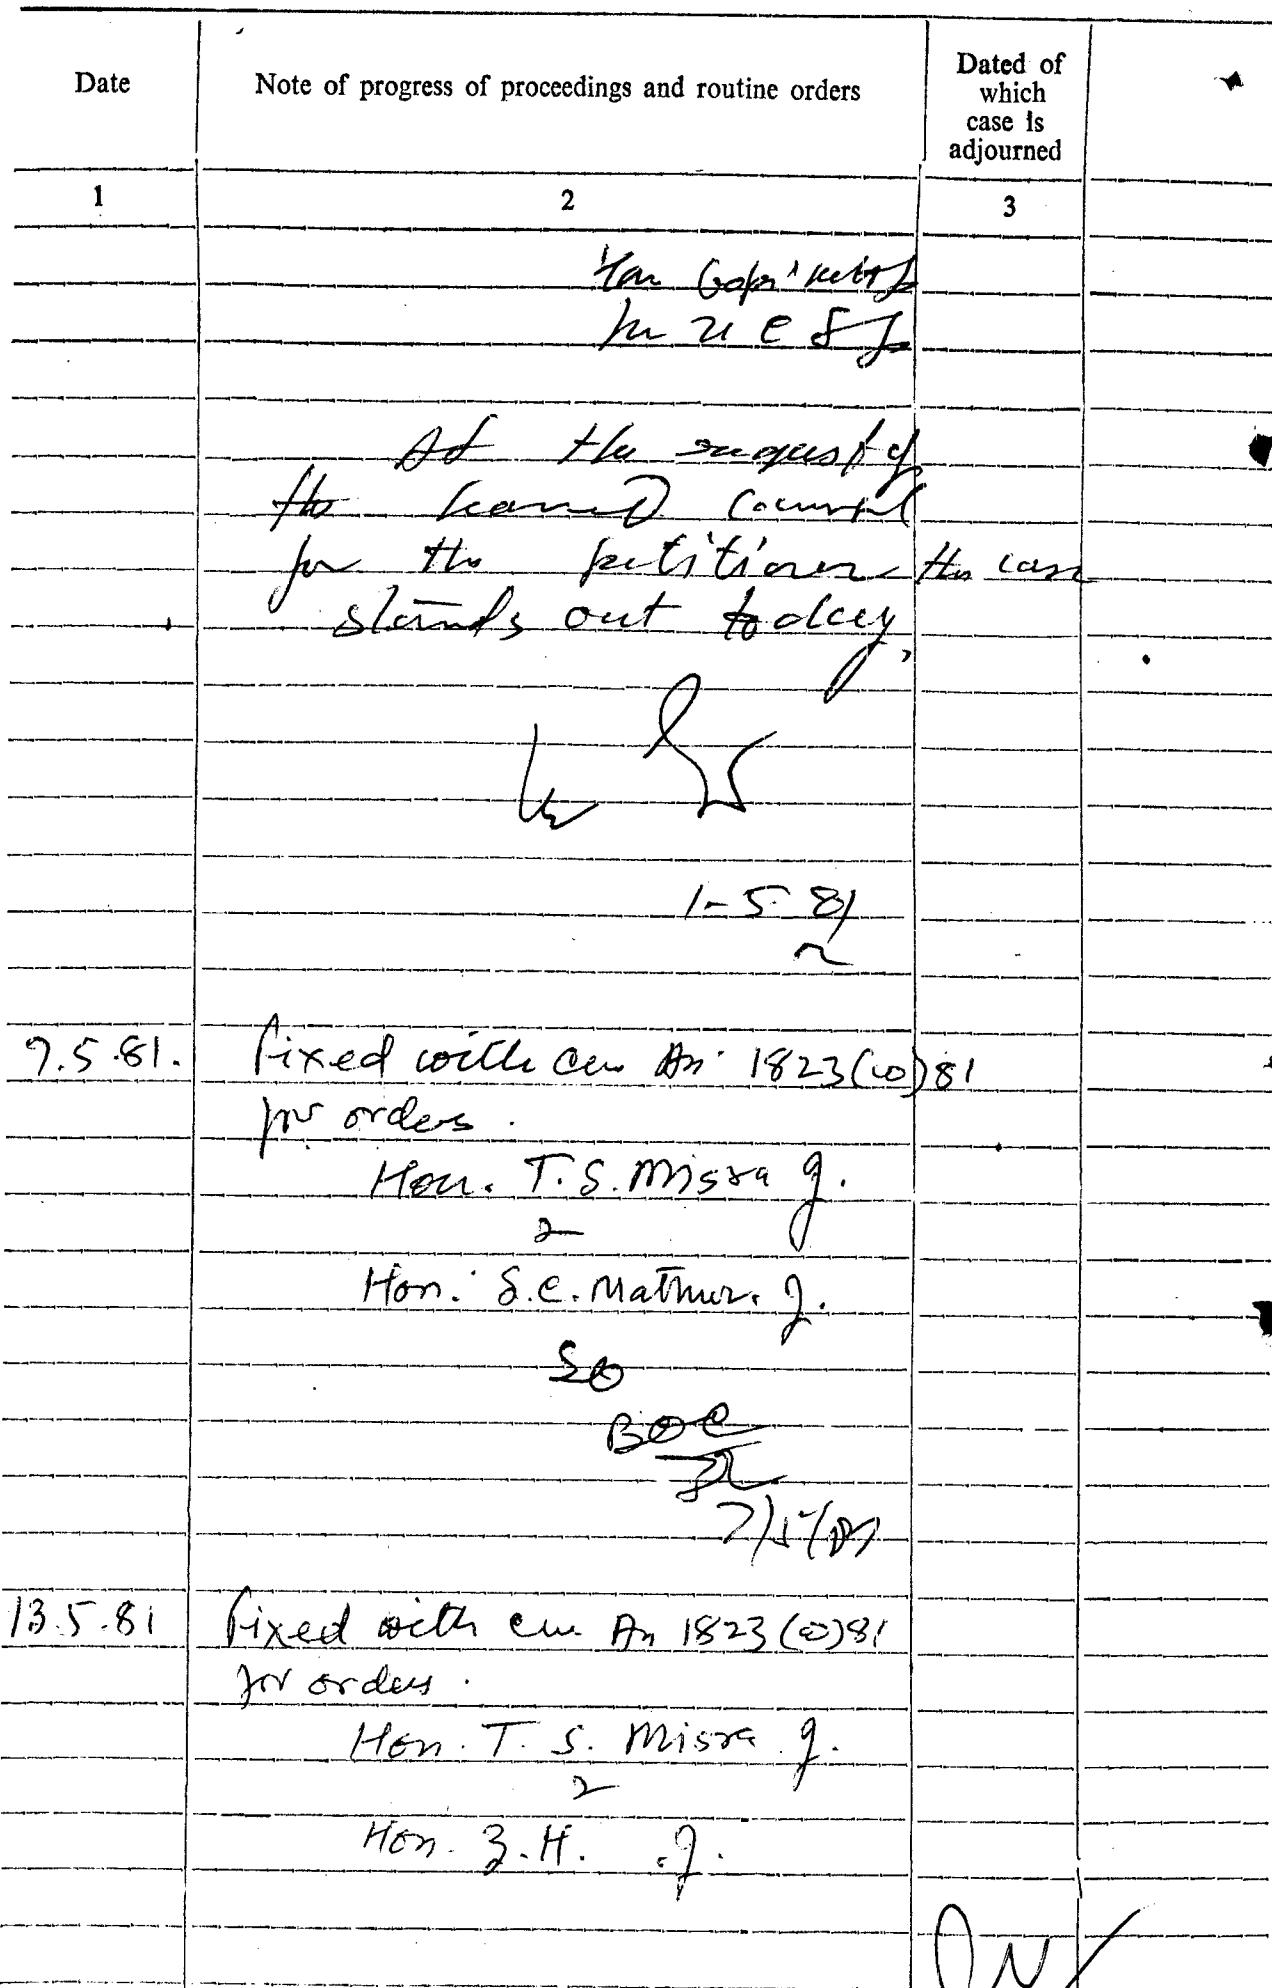 Date
Note of progress of proceedings and routine orders
Dated of
which
case is
adjourned
1
2
3
Hon
Hon U C S J
At the request of
the learned counsel
for the petitioner the case
stands out today.
1-5-81
7.5.81. Fixed with cm An 1823(w)81
for orders.
Hon. T.S. Misra J.
Hon. S.C. Mathur. J.
BOC
7/5/81
13.5.81 Fixed with cm An 1823(w)81
for orders.
Hon. T. S. Misra J.
Hon. Z.H. J.